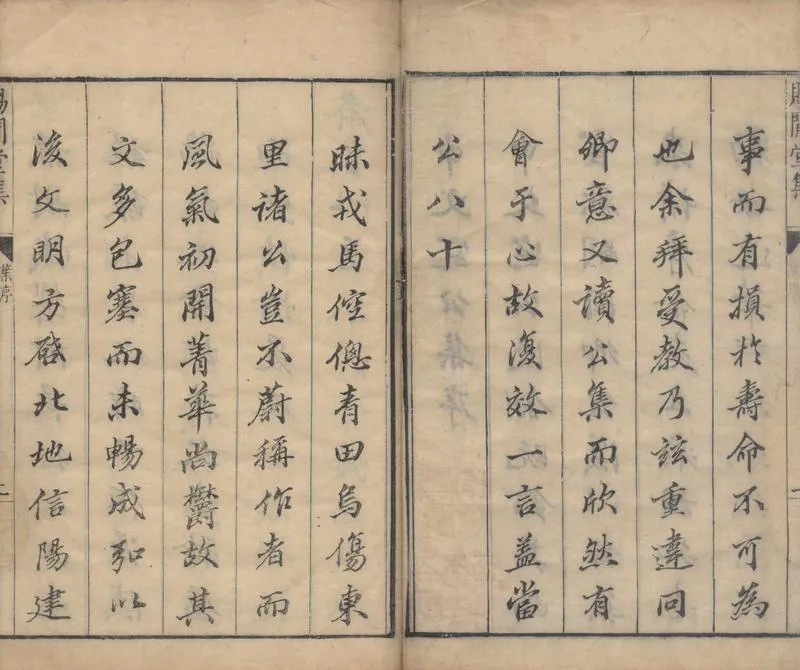 賜閒堂集
事而有損扵壽命不可為
也余拜受教乃茲重違同
卿意又讀公集而欣然有
會于心故復效一言蓋當
公八十
昧戎馬倥傯青田烏傷東
里諸公豈不蔚稱作者而
風氣初開菁華尚鬱故其
文多包塞而未暢成弘以
後文明方啓北地信陽建
賜閒堂集
葉序